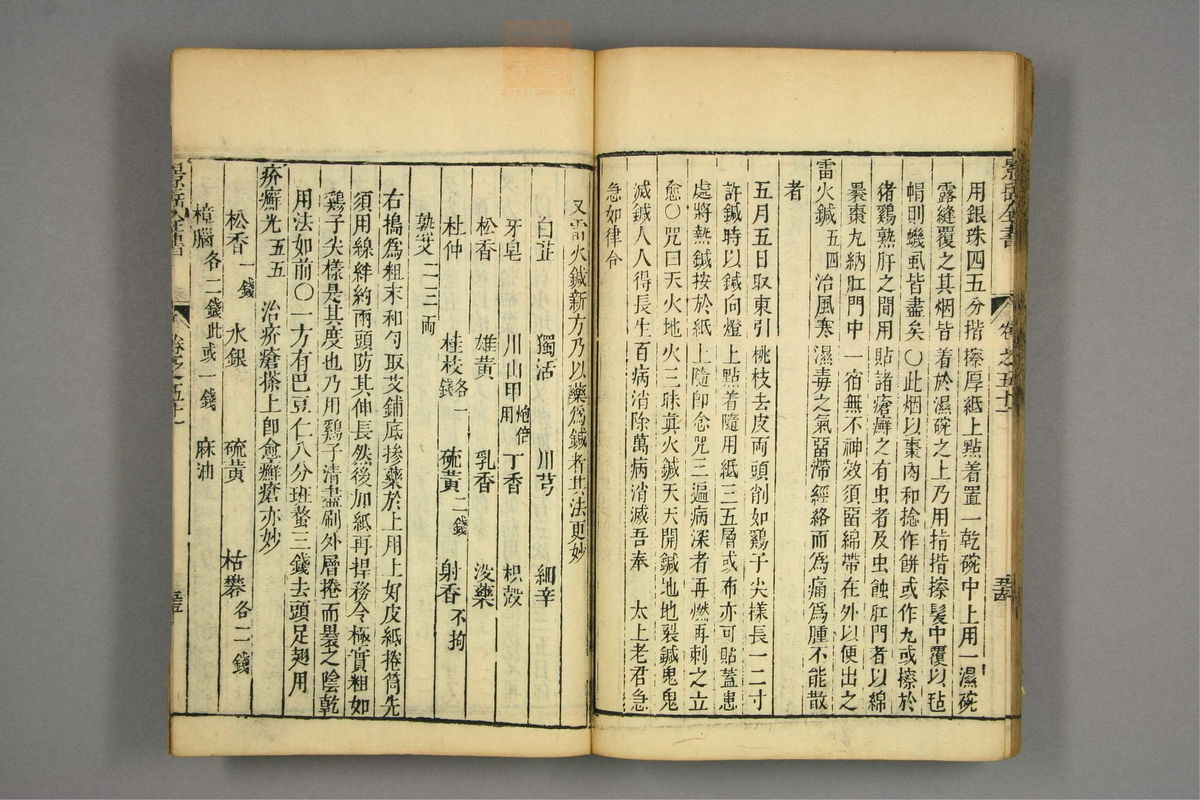 景岳全書 卷之五十一
用銀珠四五分揩擦厚紙上點着置一乾碗中上用一濕碗
露縫覆之其烟皆着於濕碗之上乃用指揩擦髮中覆以毡
帽則蟣虱皆盡矣○此烟以棗肉和捻作餅或作丸或擦於
猪鷄熟肝之間用貼諸瘡癬之有虫者及虫蝕肛門者以綿
褁棗丸納肛門中一宿無不神效須留綿帶在外以便出之
雷火鍼五四 治風寒濕毒之氣留滯經絡而爲痛爲腫不能散
者
五月五日取東引桃枝去皮両頭削如鷄子尖樣長一二寸
許鍼時以鍼向燈上點着隨用紙三五層或布亦可貼蓋患
處將熱鍼按於紙上隨即念咒三遍病深者再燃再刺之立
愈○咒曰天火地火三昧真火鍼天天開鍼地地裂鍼鬼鬼
滅鍼人人得長生百病消除萬病消滅吾奉 太上老君急
急如律令
又雷火鍼新方乃以藥爲鍼者其法更妙
白芷 獨活 川芎 細辛
牙皂 川山甲炮倍用 丁香 枳殼
松香 雄黃 乳香 沒藥
杜仲 桂枝各一錢 硫黃二錢 射香不拘
熟艾二三両
右搗爲粗末和勻取艾鋪底摻藥於上用上好皮紙捲筒先
須用線絆約兩頭防其伸長然後加紙再捍務令極實粗如
鷄子尖樣是其度也乃用鷄子清盡刷外層捲而褁之陰乾
用法如前○一方有巴豆仁八分班螯三錢去頭足翅用
疥癬光五五 治疥瘡搽上即愈癬瘡亦妙
松香一錢 水銀 硫黃 枯礬各二錢
樟腦各二錢此或一錢 麻油
景岳全書
卷之五十一